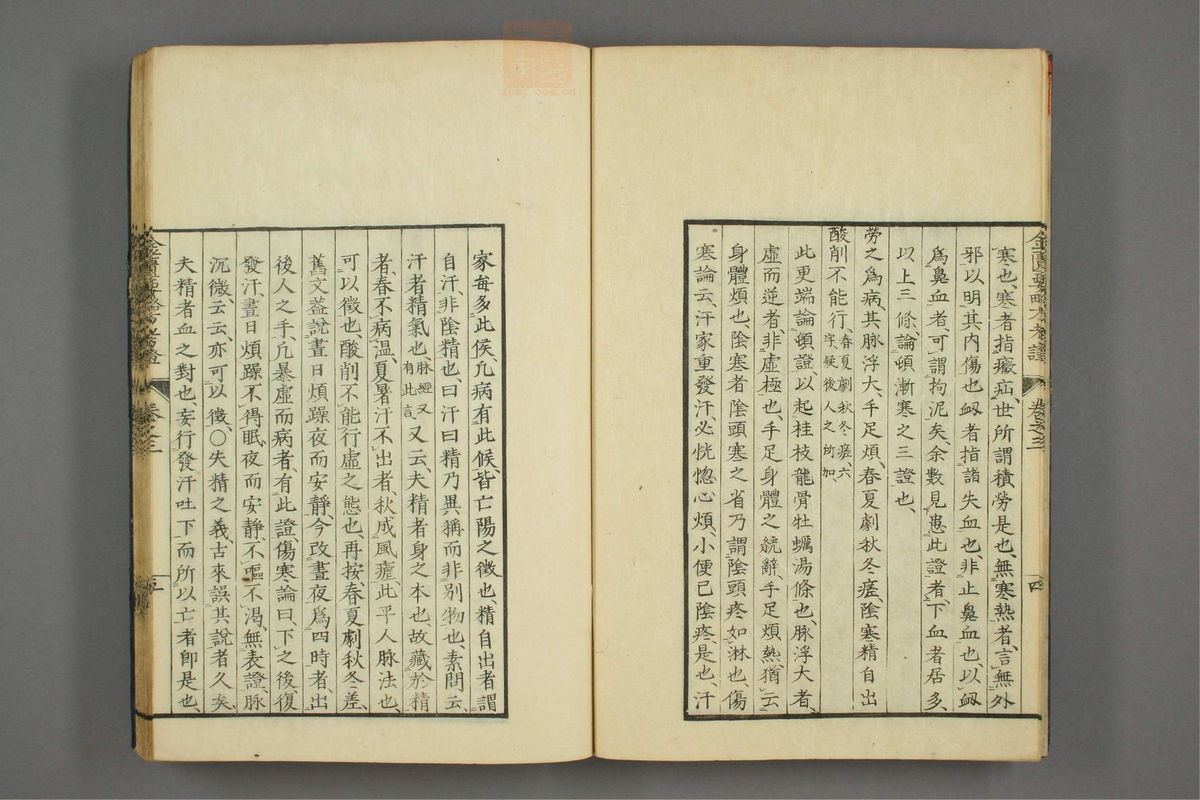 寒也、寒者指癥疝、世所謂積勞是也、無寒熱者、言無外
邪以明其内傷也衂者指諸失血也、非止鼻血也、以衂
爲鼻血者、可謂拘泥矣、余數見患此證者、下血者居多、
以上三條、論頓漸寒之三證也、
勞之爲病、其脉浮大、手足煩、春夏劇秋冬瘥、陰寒精自出
酸削不能行、春夏劇秋冬瘥、六字、疑後人之所加、
此更端論頓證、以起桂枝龍骨牡蠣湯條也、脉浮大者、
虛而逆者、非虛極也、手足身體之統辭、手足煩熱猶云
身體煩也、陰寒者陰頭寒之省乃謂陰頭疼如淋也、傷
寒論云、汗家重發汗、必恍惚心煩、小便已陰疼、是也、汗
金匱要略方考證
卷之三
四
家每多此候、凡病有此候、皆亡陽之徵也精自出者謂
自汗、非陰精也、曰汗曰精乃異稱而非別物也、素問云、
汗者精氣也、脉經又有此言、又云、夫精者身之本也、故藏於精
者、春不病溫、夏暑汗不出者、秋成風瘧、此平人脉法也、
可以徵也酸削不能行虛之態也、再按春夏劇秋冬差、
舊文蓋說晝日煩躁夜而安靜、今改晝夜爲四時者、出
後人之手、凡暴虛而病者、有此證、傷寒論曰、下之後、復
發汗、晝日煩躁不得眠、夜而安靜、不嘔不渴、無表證、脉
沉微、云云、亦可以徵、○失精之義、古來誤其說者久矣、
夫精者血之對也、妄行發汗吐下而所以亡者卽是也、
卷之三
五